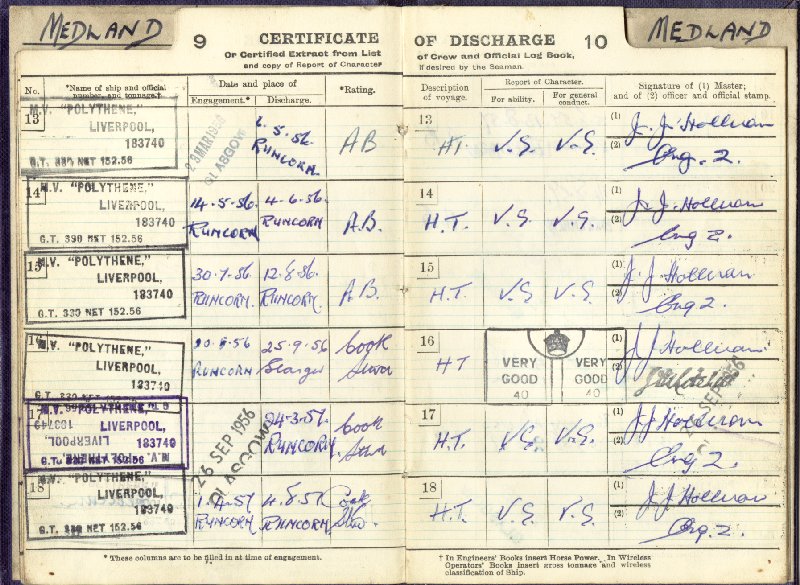 MEDLAND
MEDLAND
9 CERTIFICATE
Or Certified Extract from List
and copy of Report of Character
OF DISCHARGE 10
of Crew and Official Log Book,
if desired by the Seaman.
No.
*Name of ship and official
number, and tonnage.†
Date and place of
Engagement.*
Discharge.
*Rating.
Description
of voyage.
Report of Character.
For ability.
For general
conduct.
Signature of (1) Master;
and of (2) officer and official stamp.
13
M.V. "POLYTHENE,"
LIVERPOOL,
183740
G.T. 330 NET 152.56
29 MAR 1956
GLASGOW
5.56
RUNCORN.
AB
13
HT
V.G.
V.G.
(1) J. J. Hollman
(2) Eng. 2.
14
M.V. "POLYTHENE,"
LIVERPOOL,
183740
G.T. 330 NET 152.56
14.5.56.
RUNCORN
4.6.56.
RUNCORN
A.B.
14
H.T.
V.G.
V.G.
(1) J. J. Hollman
(2) Eng 2.
15
M.V. "POLYTHENE,"
LIVERPOOL,
183740
G.T. 330 NET 152.56
30.7.56
RUNCORN.
12.8.56.
RUNCORN.
A.B.
15
H.T.
V.G
V.G.
(1) J. J. Hollman
(2) Eng 2.
M.V. "POLYTHENE,"
LIVERPOOL,
183740
G.T. 330 NET 152.56
RUNCORN
25.9.56
Cook
16
HT
VERY
GOOD
40
VERY
GOOD
40
(1) J J Hollman
(2)
SEP 1956
17
M.V. "POLYTHENE,"
LIVERPOOL,
183740
G.T. 330 NET 152.56
M.V. "POLYTHENE,"
LIVERPOOL
183740
26 SEP 1956
GLASGOW
24-3-57.
RUNCORN
Cook
17
H.T.
V.G.
V.G.
(1) J J Hollman
(2) Eng 2.
18
M.V. "POLYTHENE,"
LIVERPOOL,
183740
G.T. 330 NET 152.56
1.4.57
RUNCORN
4.8.57.
RUNCORN
Cook
18
H.T.
V.G
V.G.
(1) J J Hollman
(2) Eng. 2.
* These columns are to be filled in at time of engagement.
† In Engineers' Books insert Horse Power. In Wireless
Operators' Books insert gross tonnage and wireless
classification of Ship.